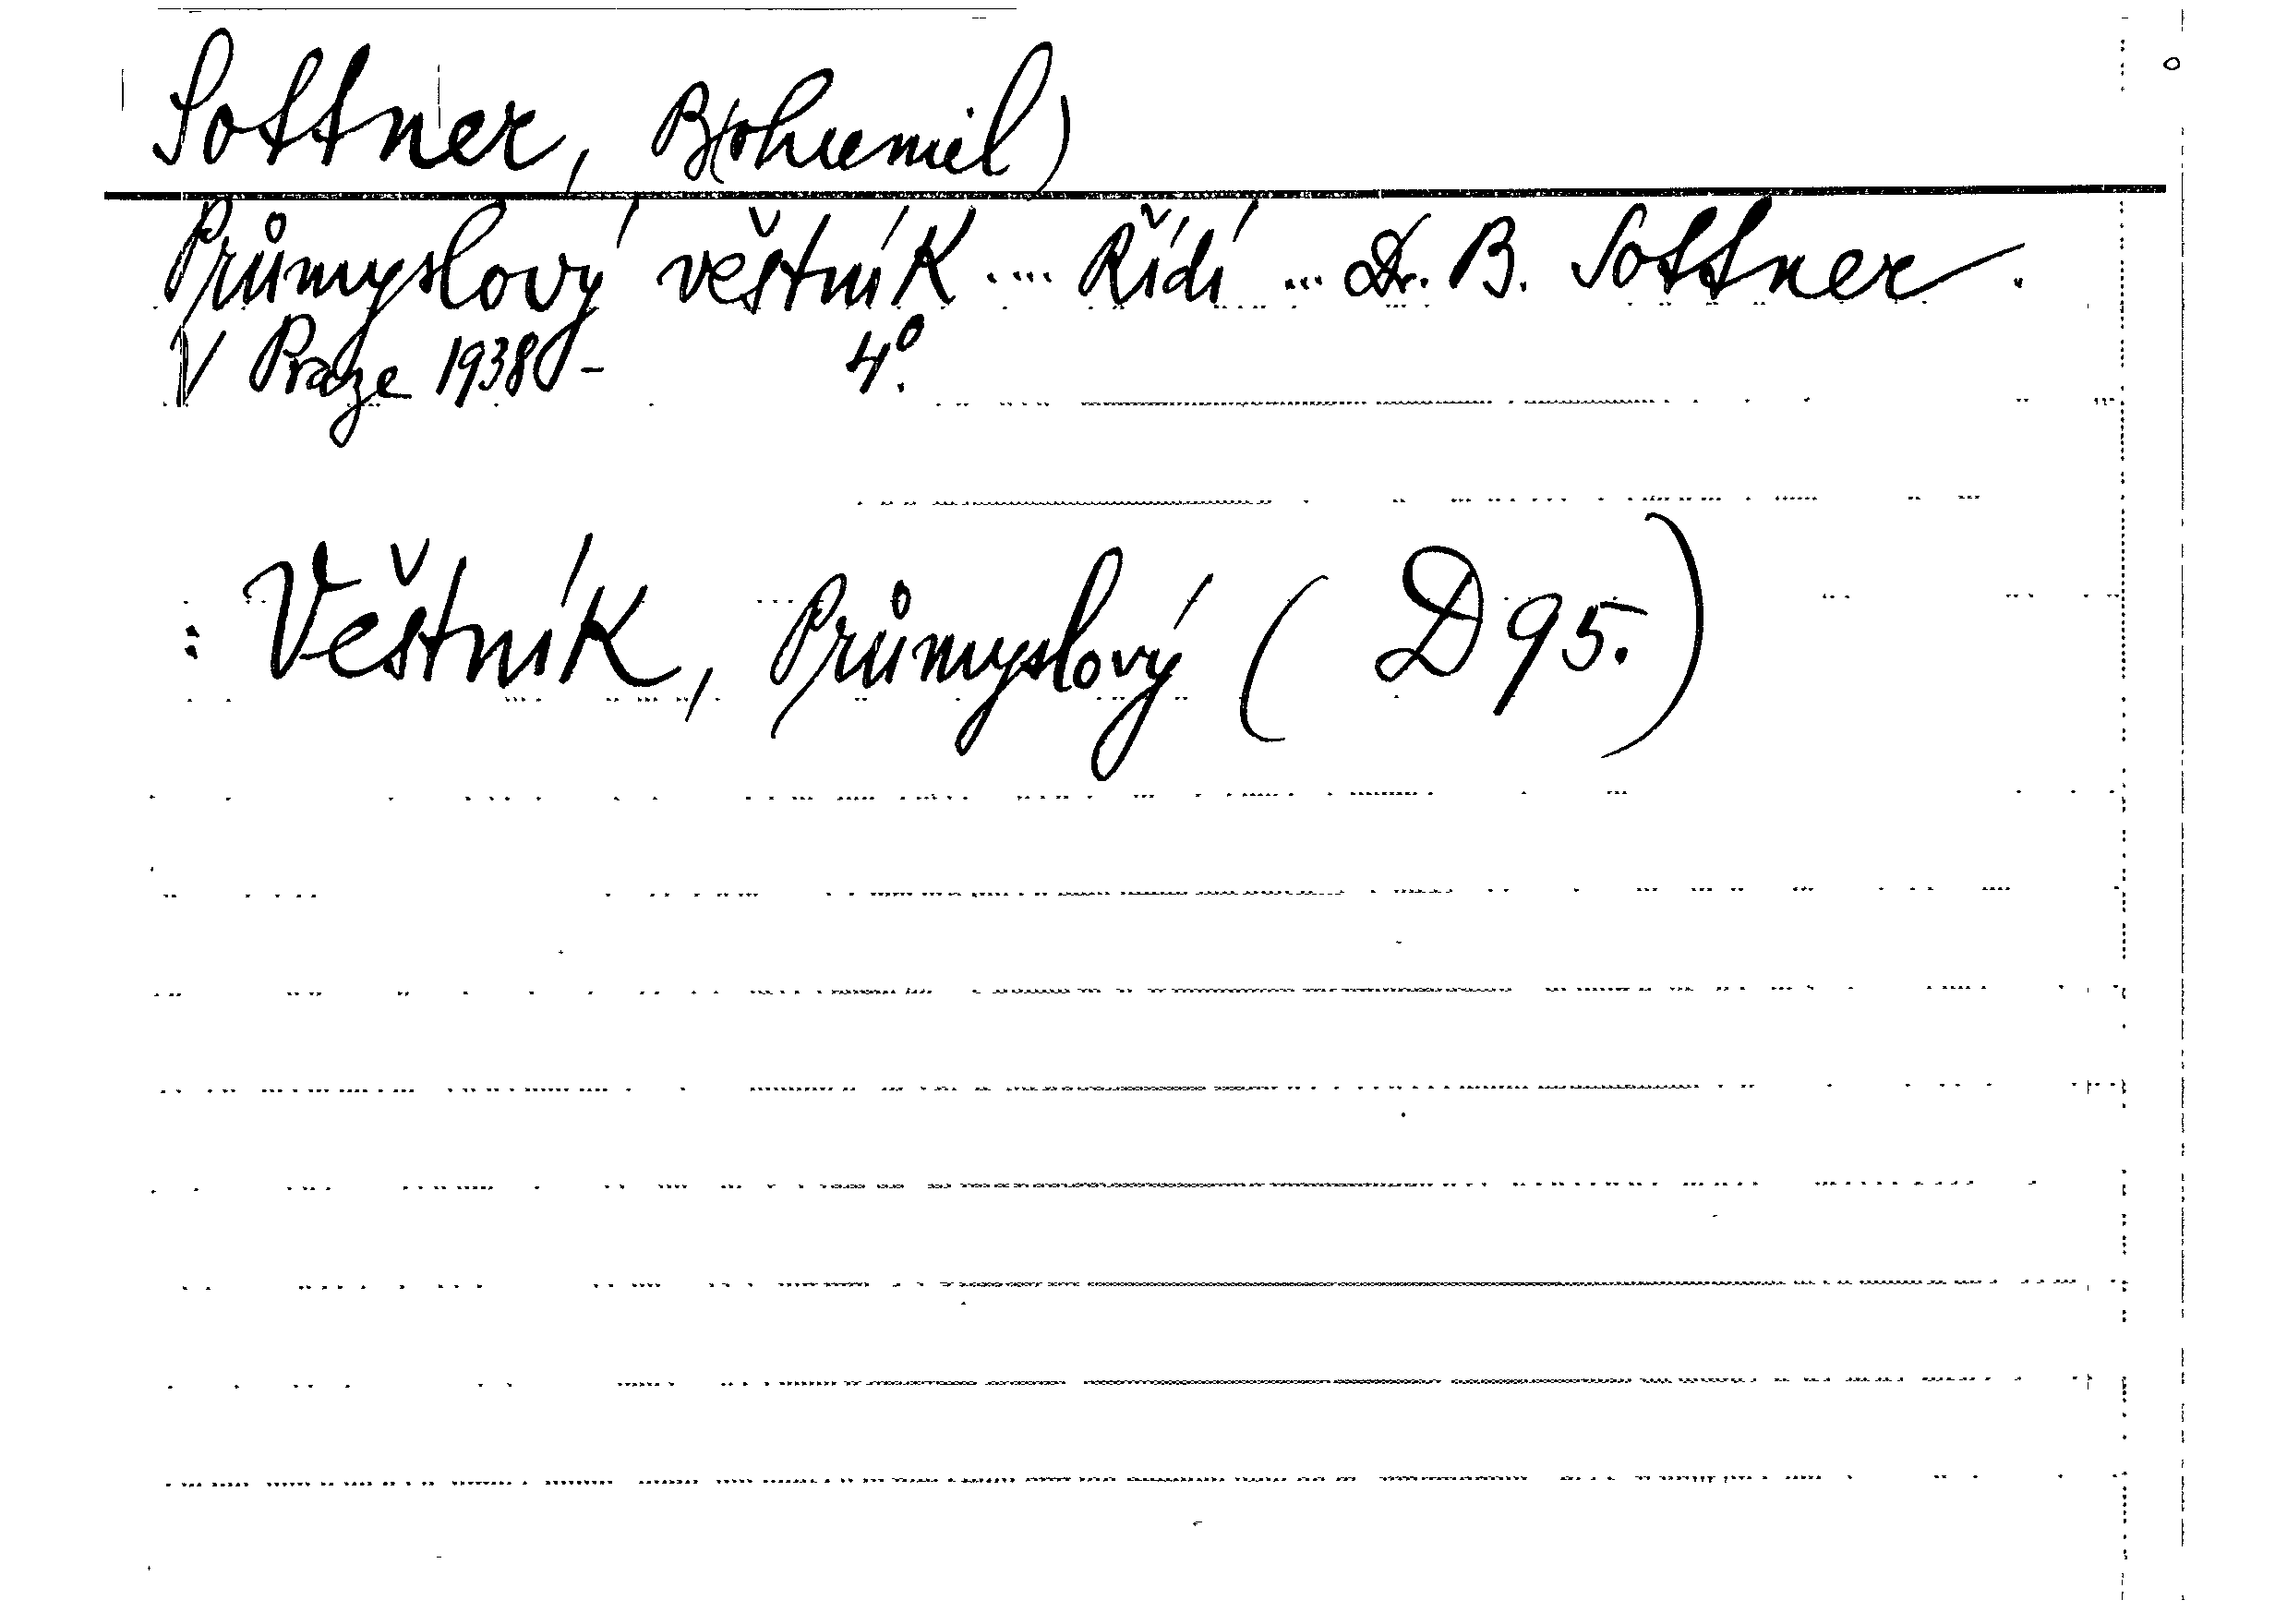 Sottner, B(ohumil)
Průmyslový věstník .... Řídí ... Dr. B. Sottner.
V Praze 1938 - 4º.
: Věstník, Průmyslový ( D 95.)